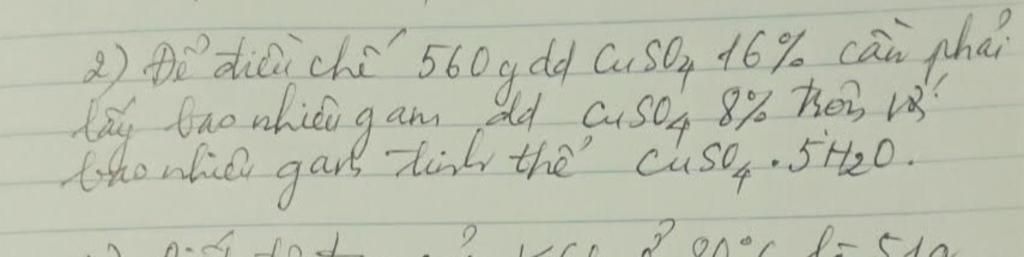 2) Để điều chế 560g dd CuSO4 16% cần phải
lấy bao nhiêu gam dd CuSO4 8% trộn với
bao nhiêu gam tinh thể CuSO4.5H2O.